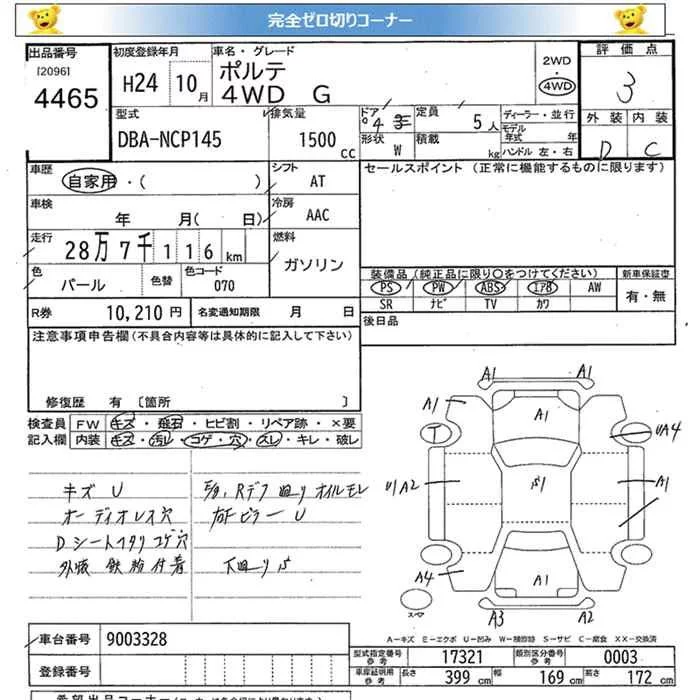 完全ゼロ切りコーナー
出品番号
[2096]
4465
初度登録年月
H24 10月
車名・グレード
ポルテ
4WD G
2WD
4WD
評価点
3
外装 内装
D C
型式
DBA-NCP145
排気量
1500 cc
ドア
4
形状
W
定員
5人
積載
kg
ディーラー・並行
モデル年式 年
ハンドル 左・右
車歴
自家用・( )
シフト
AT
車検
年 月( 日)
冷房
AAC
走行
28万7千116km
燃料
ガソリン
色
パール
色替
色コード
070
R券
10,210円
名変通知期限 月 日
セールスポイント (正常に機能するものに限ります)
装備品(純正品に限り○をつけてください)
PS PW ABS エアB AW
SR ナビ TV カワ
新車保証書
有・無
後日品
注意事項申告欄(不具合内容等は具体的に記入して下さい)
修復歴 有 〔箇所 〕
検査員記入欄
FW キズ・飛石・ヒビ割・リペア跡・×要
内装 キズ・汚レ・コゲ・穴・スレ・キレ・破レ
キズ U
オーディオレス穴
Dシートヘタリ コゲ穴
外板 鉄粉付着
Rデフ廻りオイルモレ
右Fピラー U
下廻りS
A1 A1
A1
A1
UA4
UA2
S1
A1
A4
A1
スペア
A3 A2
A-キズ E-エクボ U-凹み W-補修跡 S-サビ C-腐食 XX-交換済
車台番号
9003328
登録番号
型式指定番号
参考
17321
類別区分番号
参考
0003
車庫証明用
参考
長さ 399 cm 幅 169 cm 高さ 172 cm